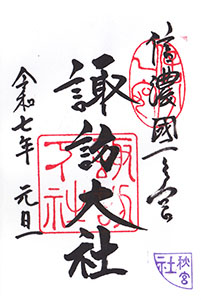 信濃國一之宮
諏訪大社
令和七年 元旦
秋宮
社